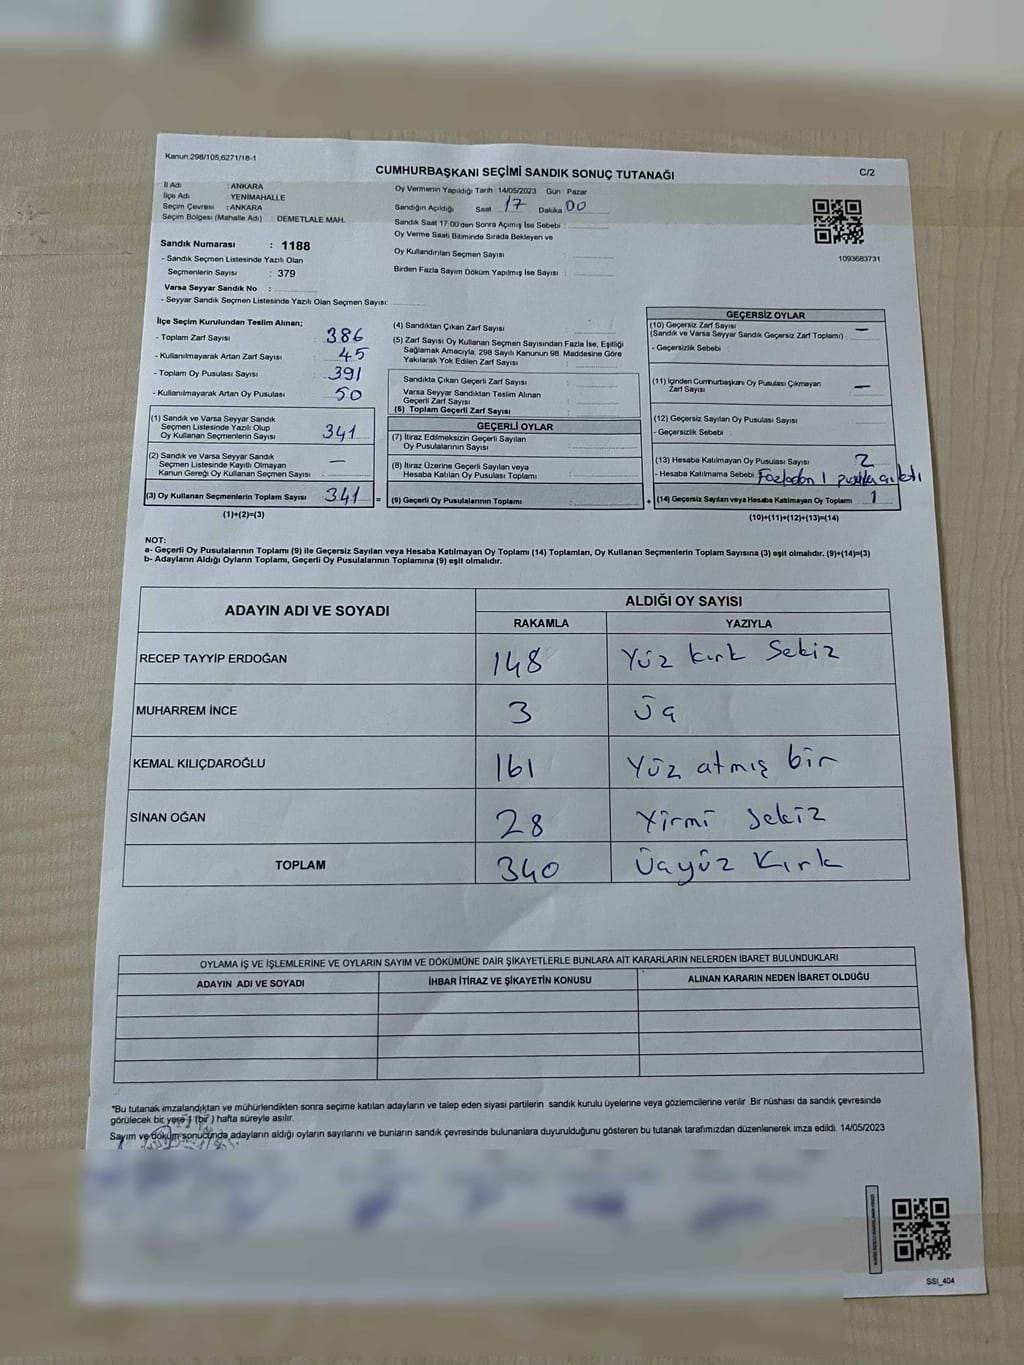 Kanun:298/105,6271/18-1
CUMHURBAŞKANI SEÇİMİ SANDIK SONUÇ TUTANAĞI
C/2
İl Adı : ANKARA
İlçe Adı : YENİMAHALLE
Seçim Çevresi : ANKARA
Seçim Bölgesi (Mahalle Adı) : DEMETLALE MAH.
Oy Vermenin Yapıldığı Tarih : 14/05/2023 Gün : Pazar
Sandığın Açıldığı Saat 17 Dakika 00
Sandık Saat 17:00'den Sonra Açımış İse Sebebi :
Oy Verme Saati Bitiminde Sırada Bekleyen ve
Oy Kullandırılan Seçmen Sayısı :
Birden Fazla Sayım Döküm Yapılmış İse Sayısı :
1093683731
Sandık Numarası : 1188
- Sandık Seçmen Listesinde Yazılı Olan
Seçmenlerin Sayısı : 379
Varsa Seyyar Sandık No :
- Seyyar Sandık Seçmen Listesinde Yazılı Olan Seçmen Sayısı:
İlçe Seçim Kurulundan Teslim Alınan;
- Toplam Zarf Sayısı : 386
- Kullanılmayarak Artan Zarf Sayısı : 45
- Toplam Oy Pusulası Sayısı : 391
- Kullanılmayarak Artan Oy Pusulası : 50
(1) Sandık ve Varsa Seyyar Sandık
Seçmen Listesinde Yazılı Olup
Oy Kullanan Seçmenlerin Sayısı 341
(2) Sandık ve Varsa Seyyar Sandık
Seçmen Listesinde Kayıtlı Olmayan
Kanun Gereği Oy Kullanan Seçmen Sayısı : —
(3) Oy Kullanan Seçmenlerin Toplam Sayısı 341 =
(1)+(2)=(3)
(4) Sandıktan Çıkan Zarf Sayısı :
(5) Zarf Sayısı Oy Kullanan Seçmen Sayısından Fazla İse, Eşitliği
Sağlamak Amacıyla, 298 Sayılı Kanunun 98. Maddesine Göre
Yakılarak Yok Edilen Zarf Sayısı :
Sandıkta Çıkan Geçerli Zarf Sayısı :
Varsa Seyyar Sandıktan Teslim Alınan
Geçerli Zarf Sayısı :
(6) Toplam Geçerli Zarf Sayısı :
GEÇERLİ OYLAR
(7) İtiraz Edilmeksizin Geçerli Sayılan
Oy Pusulalarının Sayısı :
(8) İtiraz Üzerine Geçerli Sayılan veya
Hesaba Katılan Oy Pusulası Toplamı :
(9) Geçerli Oy Pusulalarının Toplamı : +
GEÇERSİZ OYLAR
(10) Geçersiz Zarf Sayısı
(Sandık ve Varsa Seyyar Sandık Geçersiz Zarf Toplamı) : —
- Geçersizlik Sebebi :
(11) İçinden Cumhurbaşkanı Oy Pusulası Çıkmayan
Zarf Sayısı : —
(12) Geçersiz Sayılan Oy Pusulası Sayısı :
- Geçersizlik Sebebi :
(13) Hesaba Katılmayan Oy Pusulası Sayısı : 2
- Hesaba Katılmama Sebebi : Fazladan 1 pusula çıktı
(14) Geçersiz Sayılan veya Hesaba Katılmayan Oy Toplamı : 1
(10)+(11)+(12)+(13)=(14)
NOT:
a- Geçerli Oy Pusulalarının Toplamı (9) ile Geçersiz Sayılan veya Hesaba Katılmayan Oy Toplamı (14) Toplamları, Oy Kullanan Seçmenlerin Toplam Sayısına (3) eşit olmalıdır. (9)+(14)=(3)
b- Adayların Aldığı Oyların Toplamı, Geçerli Oy Pusulalarının Toplamına (9) eşit olmalıdır.
ADAYIN ADI VE SOYADI
ALDIĞI OY SAYISI
RAKAMLA YAZIYLA
RECEP TAYYİP ERDOĞAN 148 Yüz kırk Sekiz
MUHARREM İNCE 3 Üç
KEMAL KILIÇDAROĞLU 161 Yüz atmış bir
SİNAN OĞAN 28 Yirmi Sekiz
TOPLAM 340 Üçyüz Kırk
OYLAMA İŞ VE İŞLEMLERİNE VE OYLARIN SAYIM VE DÖKÜMÜNE DAİR ŞİKAYETLERLE BUNLARA AİT KARARLARIN NELERDEN İBARET BULUNDUKLARI
ADAYIN ADI VE SOYADI İHBAR İTİRAZ VE ŞİKAYETİN KONUSU ALINAN KARARIN NEDEN İBARET OLDUĞU
*Bu tutanak imzalandıktan ve mühürlendikten sonra seçime katılan adayların ve talep eden siyasi partilerin sandık kurulu üyelerine veya gözlemcilerine verilir. Bir nüshası da sandık çevresinde
görülecek bir yere 1 (bir) hafta süreyle asılır.
Sayım ve döküm sonucunda adayların aldığı oyların sayılarını ve bunların sandık çevresinde bulunanlara duyurulduğunu gösteren bu tutanak tarafımızdan düzenlenerek imza edildi. 14/05/2023
SSI_404